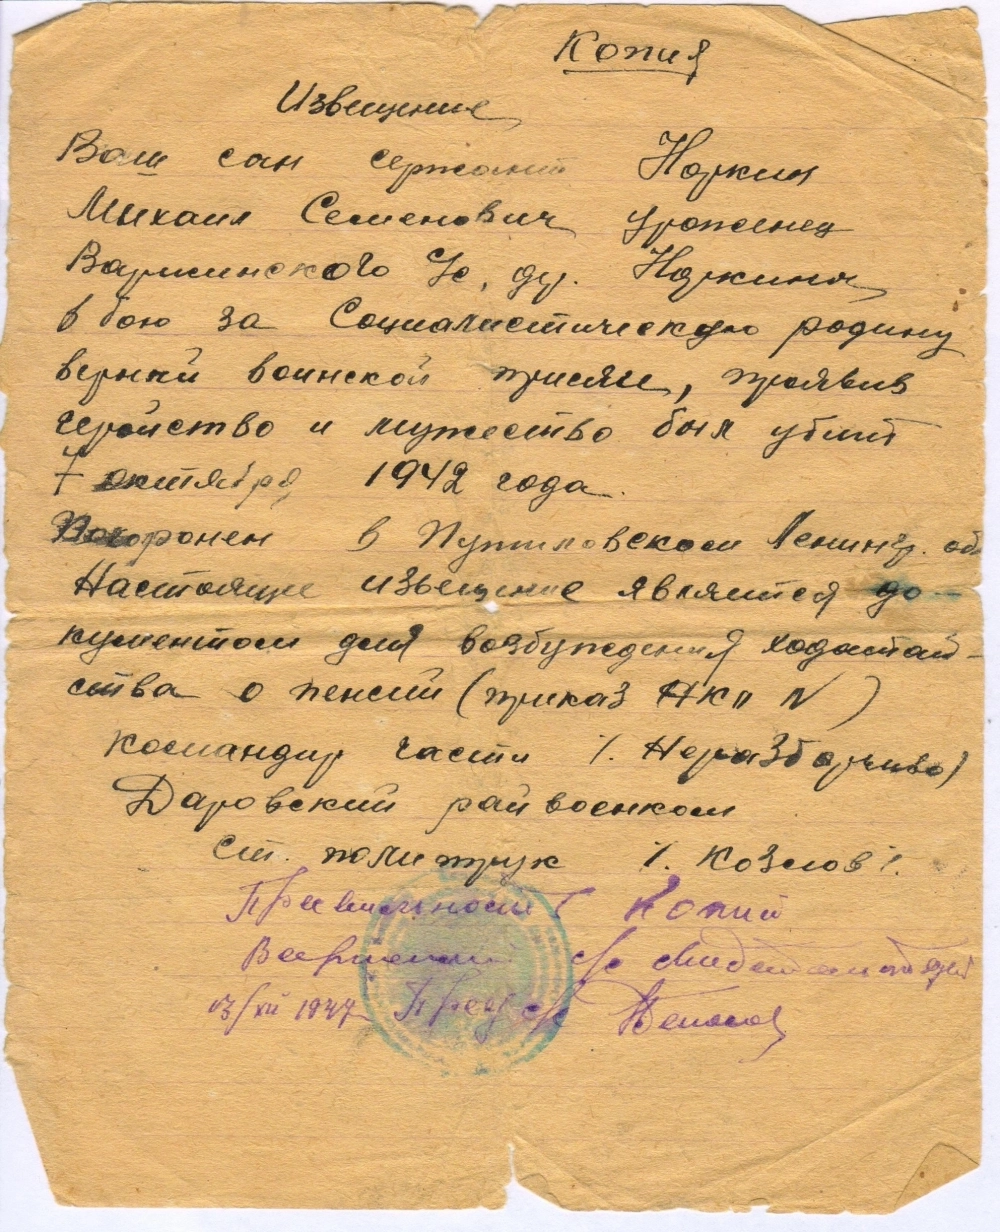 Копия
Извещение
Ваш сан сержант Норкин
Михаил Семенович уроженец
Варжинского с/с, дер. Норкиня
в бою за Социалистическую родину
верный воинской присяге, проявив
геройство и мужество был убит
7 октября 1942 года.
Похоронен в Путиловском Ленингр. об
Настоящие извещение является до-
кументом для возбуждения ходатай-
ства о пенсии (приказ НКО N )
командир части /. Неразборчиво)
Даровский райвоенком
ст. политрук /. Козлов /.
Правильност копий
с/с
13/XII 1947 Пред с/с